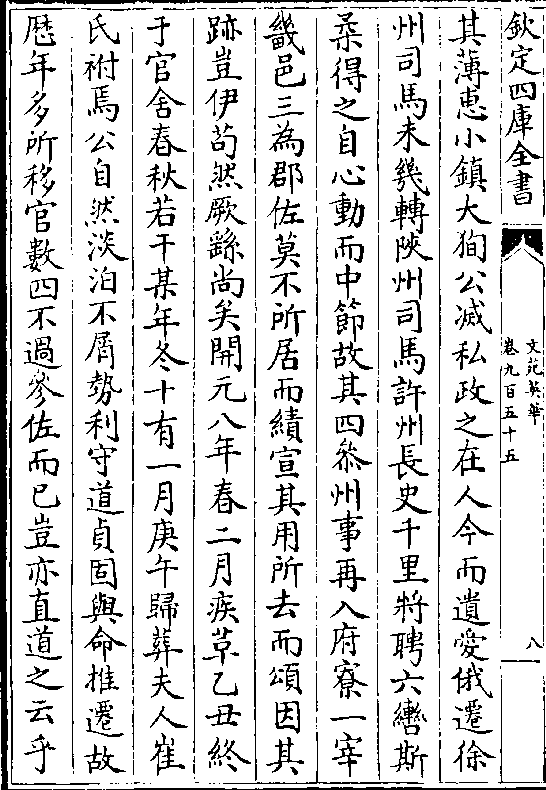 欽定四庫全書
文苑英華
卷九百五十五
八
其薄恵小鎮大狥公滅私政之在人今而遺愛俄遷徐
州司馬未幾轉陜州司馬許州長史千里將聘六轡斯
柔得之自心動而中節故其四叅州事再入府寮一宰
畿邑三為郡佐莫不所居而績宣其用所去而頌因其
跡豈伊苟然厥繇尚矣開元八年春二月疾革乙丑終
于官舍春秋若干某年冬十有一月庚午歸葬夫人崔
氏祔焉公自然淡泊不屑勢利守道貞固與命推遷故
歴年多所移官數四不過參佐而已豈亦直道之云乎